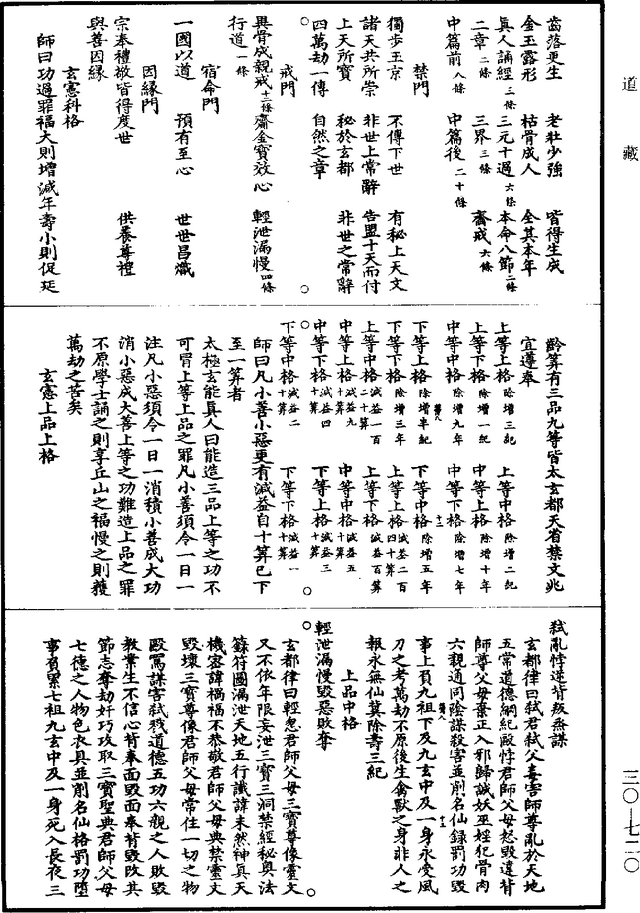 道藏
齒落更生　老壯少強　皆得生成
金玉露形　枯骨成人　全其本年
眞人誦經三條　三元十過六條　本命八節二條
二章二條　三界三條　齋戒六條
中篇前八條　中篇後二十條
禁門
獨步玉京　不傳下世　有秘上天文
諸天共所崇　非世上常辭　告盟十天而付
上天所寶　秘於玄都　非世之常辭
四萬劫一傳　自然之章
戒門
異骨成親戒十二條　齋金寶效心　輕泄漏慢四條
行道一條
宿命門
一國以道　預有至心　世世昌熾
因緣門
宗奉禮敬皆得度世　供養尊禮
與善因緣
玄憲科格
師曰功過罪福大則增減年壽小則促延
齡筭有三品九等皆太玄都天省禁文兆
宜遵奉
上等上格除增三紀　上等中格除增二紀
上等下格除增一紀　中等上格除增十年
中等中格除增九年　中等下格除增七年
下等上格除增半紀　下等中格除增五年
下等下格除增三年　上等上格減益二百四十筭
上等中格減益一百二十筭　上等下格減益百筭
中等上格減益九十筭　中等中格減益五十筭
中等下格減益四十筭　下等上格減益三十筭
下等中格減益二十筭　下等下格減益一十筭
師曰凡小善小惡更有減益自十筭已下
至一筭者
太極玄能眞人曰能造三品上等之功不
可冒上等上品之罪凡小善須令一日一
注凡小惡須令一日一消積小善成大功
消小惡成大善上等之功難造上品之罪
不原學士誦之則享丘山之福慢之則獲
萬劫之苦矣
玄憲上品上格
弒亂悖逆背叛烝謀
玄都律曰弒君弒父毒害師尊亂於天地
五常道德綱紀毆悖君師父母怒毀違背
師尊父母棄正入邪歸誠妖巫婬犯骨肉
六親通同陰謀殺害並削名仙錄罰功毀
事上頁九祖下及九玄中及一身永受風
刀之考萬劫不原後生禽獸之身非人之
報永無仙冀除壽三紀
上品中格
輕泄漏慢毀惡敗奪
玄都律曰輕忽君師父母三寶尊像靈文
又不依年限妄泄三寶三洞禁經秘奧法
籙符圖漏泄天地五行讖諱未然神眞天
機容諱禍福不恭敬君師父母典禁靈文
毀壞三寶尊像君師父母常住一切之物
毆罵謀害弒戕道德五功六親之人敗毀
教業生不信心背奉面毀面奉背毀改其
節志奪劫奸巧攻取三寶聖典君師父母
七德之人物色衣具並削名仙格罰功墮
事有累七祖九玄中及一身死入長夜三
三〇—七二〇